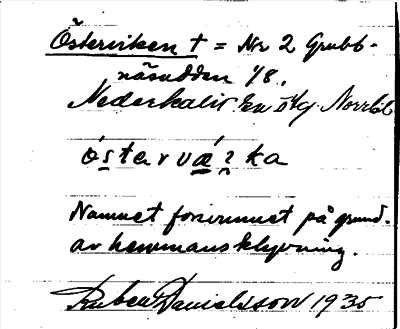 Österviken † = Nr 2 Grubb-
näsudden 1/8.
Nederkalix sn Norrbt.
Namnet försvunnet på grund
av hemmansklyvning.
Ruben Danielsson 1935